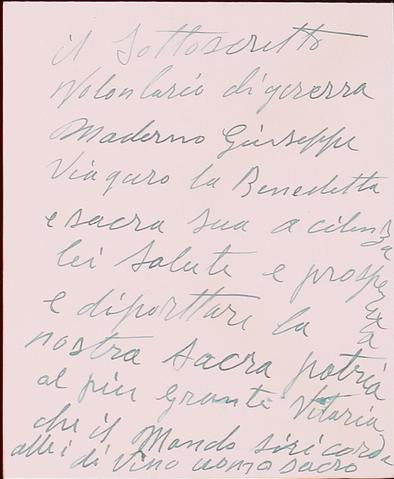 il Sottoscretto
Volontario di gerra
Maderno Giuseppe
Viaguro la Benedetta
e sacra sua acilenza
lei Salute e prosperita
e diporttare la
nostra sacra patria
al piu grante Vitoria
che il Mondo siricorda
alle i di Vino uomo sacro